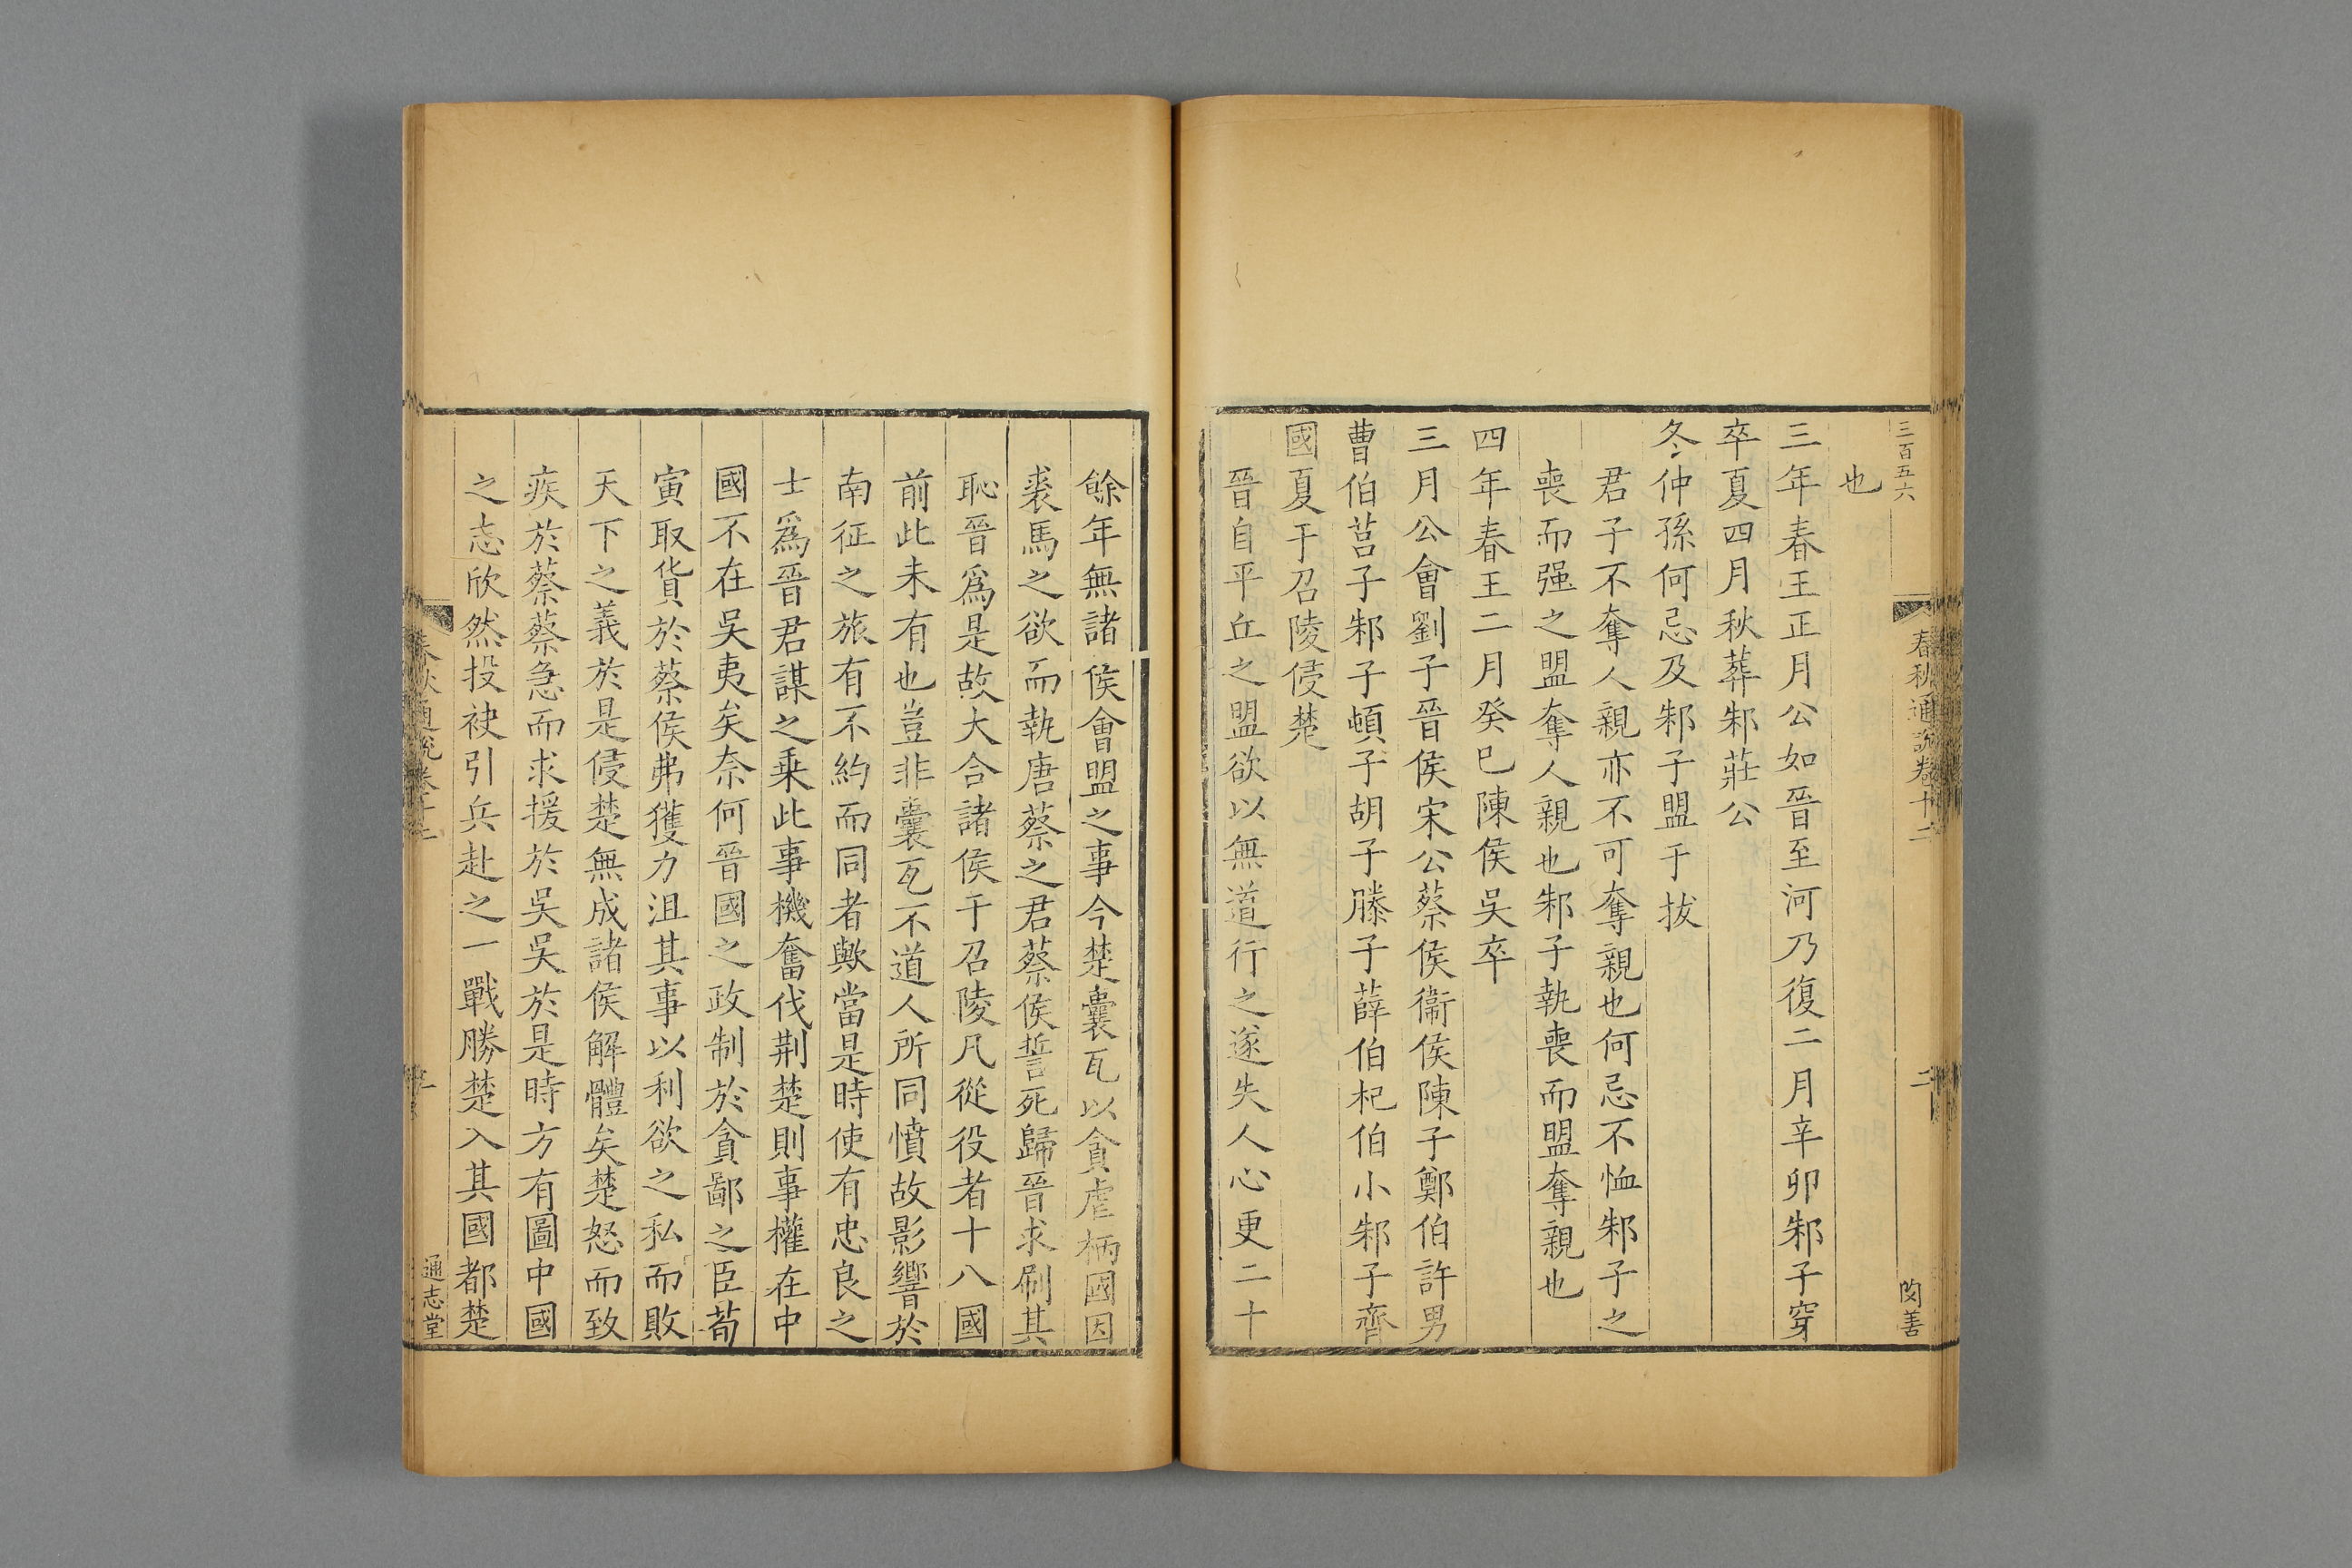 三百五六
春秋通說卷十二
二
閔善
也
三年春王正月公如晉至河乃復二月辛卯邾子穿
卒夏四月秋葬邾莊公
冬仲孫何忌及邾子盟于拔
君子不奪人親亦不可奪親也何忌不恤邾子之
喪而强之盟奪人親也邾子執喪而盟奪親也
四年春王二月癸巳陳侯吳卒
三月公會劉子晉侯宋公蔡侯衞侯陳子鄭伯許男
曹伯莒子邾子頓子胡子滕子薛伯杞伯小邾子齊
國夏于召陵侵楚
晉自平丘之盟欲以無道行之遂失人心更二十
餘年無諸侯會盟之事今楚囊瓦以貪虐柄國因
裘馬之欲而執唐蔡之君蔡侯誓死歸晉求刷其
恥晉爲是故大合諸侯于召陵凡從役者十八國
前此未有也豈非囊瓦不道人所同憤故影響於
南征之旅有不約而同者歟當是時使有忠良之
士爲晉君謀之乗此事機奮伐荆楚則事權在中
國不在吳夷矣奈何晉國之政制於貪鄙之臣荀
寅取貨於蔡侯弗獲力沮其事以利欲之私而敗
天下之義於是侵楚無成諸侯解體矣楚怒而致
疾於蔡蔡急而求援於吳吳於是時方有圖中國
之志欣然投袂引兵赴之一戰勝楚入其國都楚
春秋通說卷十二
通志堂